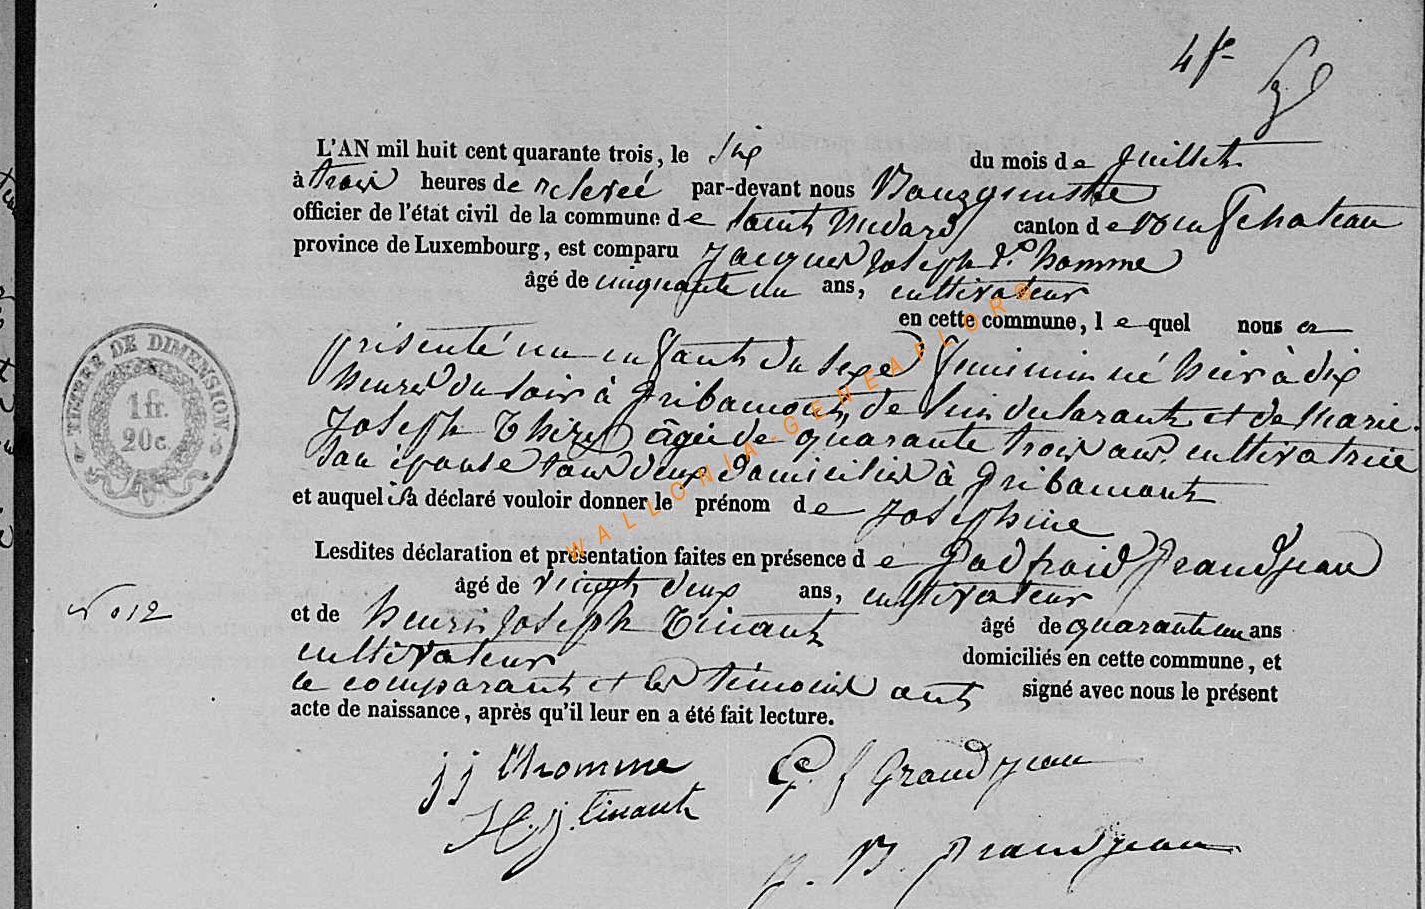 L'AN mil huit cent quarante trois, le six du mois de Juillet
à trois heures de relevée par-devant nous
officier de l'état civil de la commune de Saint Médard canton de Neufchateau
province de Luxembourg, est comparu Jacques Joseph L'homme
âgé de cinquante un ans, cultivateur
en cette commune, lequel nous a
présenté un enfant du sexe féminin né hier à dix
heures du soir à Gribamont, de lui déclarant et de Marie
Joseph Thiry âgée de quarante trois ans cultivatrice
son épouse tous deux domiciliés à Gribamont
et auquel il a déclaré vouloir donner le prénom de Josephine
Lesdites déclaration et présentation faites en présence de Godfroid Grandjean
âgé de vingt deux ans, cultivateur
et de henri Joseph Tinant âgé de quarante un ans
cultivateur domiciliés en cette commune, et
le comparant et les témoins ont signé avec nous le présent
acte de naissance, après qu'il leur en a été fait lecture.
j j l'homme G. J Grandjean
H. j. Tinant
Grandjean
N° 12
TIMBRE DE DIMENSION
1 fr.
20c.
WALLONIA-GENEAFLOR®